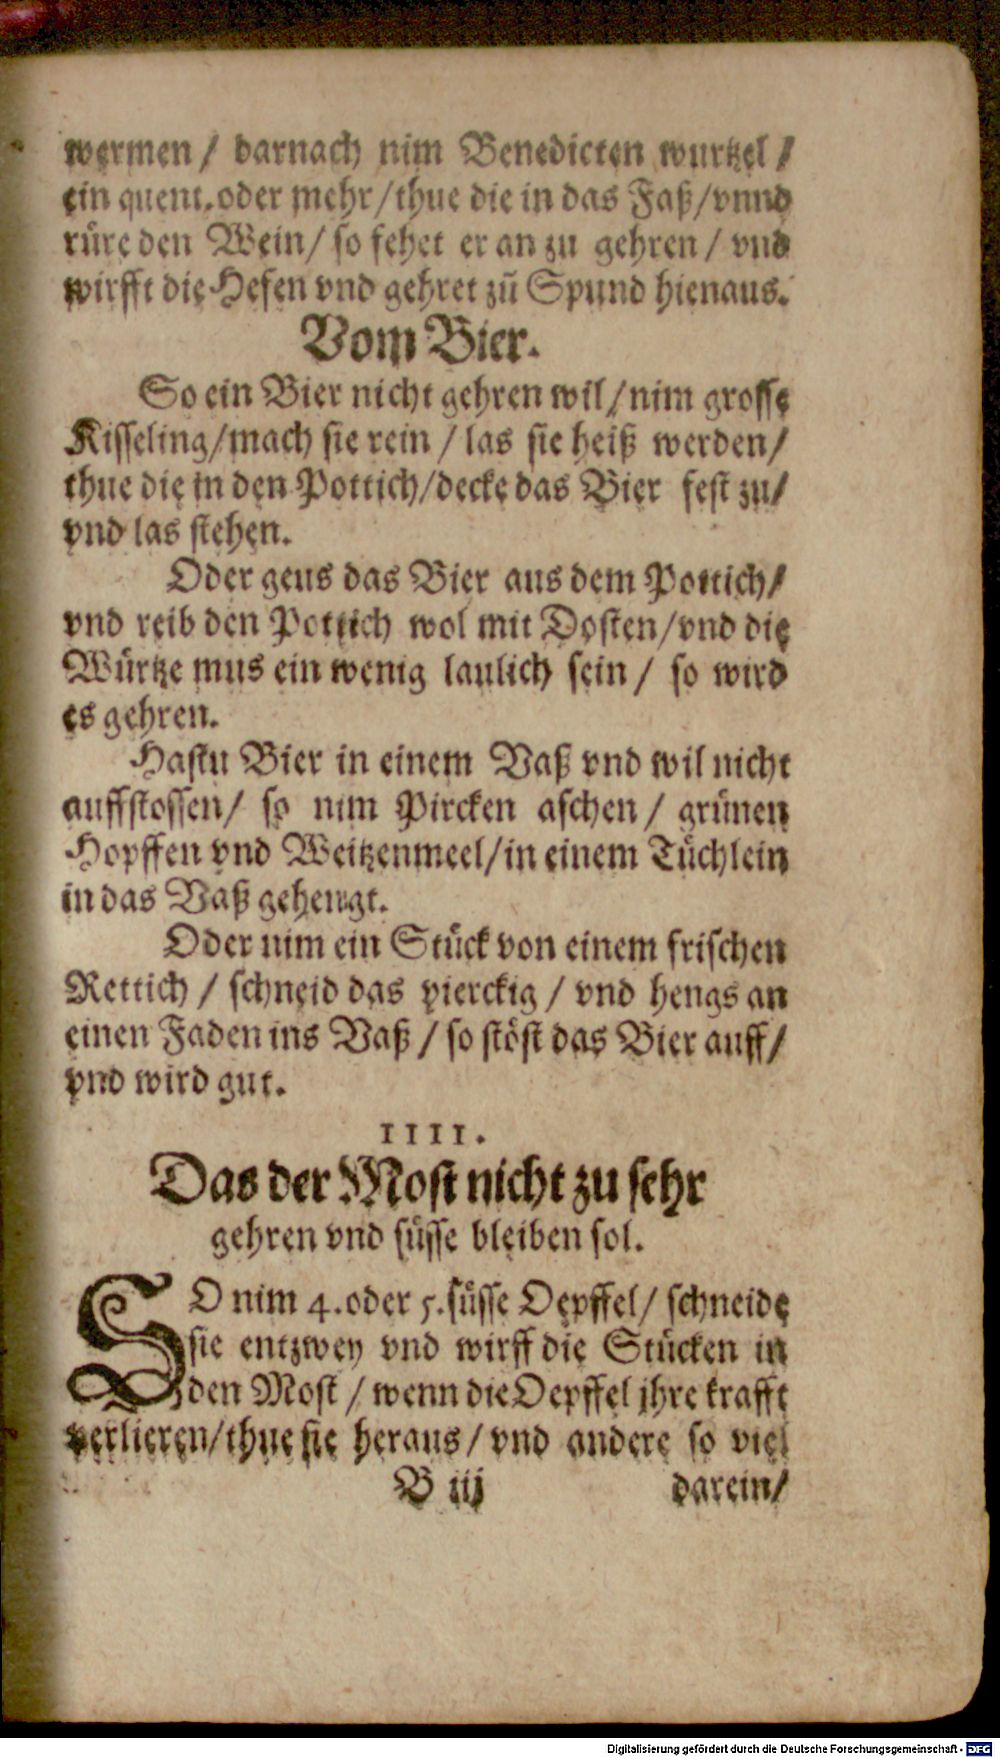 wermen / darnach nim Benedicten wurtzel /
ein quent. oder mehr / thue die in das Faß / vnnd
rüre den Wein / so fehet er an zu gehren / vnd
wirfft die Hefen vnd gehret zū Spund hienaus.
Vom Bier.
So ein Bier nicht gehren wil / nim grosse
Kisseling / mach sie rein / las sie heiß werden /
thue die in den Pottich / decke das Bier fest zu /
vnd las stehen.
Oder geus das Bier aus dem Pottich /
vnd reib den Pottich wol mit Dosten / vnd die
Würtze mus ein wenig laulich sein / so wird
es gehren.
Hastu Bier in einem Vaß vnd wil nicht
auffstossen / so nim Pircken aschen / grünen
Hopffen vnd Weitzenmeel / in einem Tüchlein
in das Vaß gehengt.
Oder nim ein Stück von einem frischen
Rettich / schneid das vierckig / vnd hengs an
einen Faden ins Vaß / so stöst das Bier auff /
vnd wird gut.
IIII.
Das der Most nicht zu sehr
gehren vnd süsse bleiben sol.
SO nim 4. oder 5. süsse Oepffel / schneide
sie entzwey vnd wirff die Stücken in
den Most / wenn die Oepffel jhre krafft
verlieren / thue sie heraus / vnd andere so viel
B iij darein /
Digitalisierung gefördert durch die Deutsche Forschungsgemeinschaft - DFG